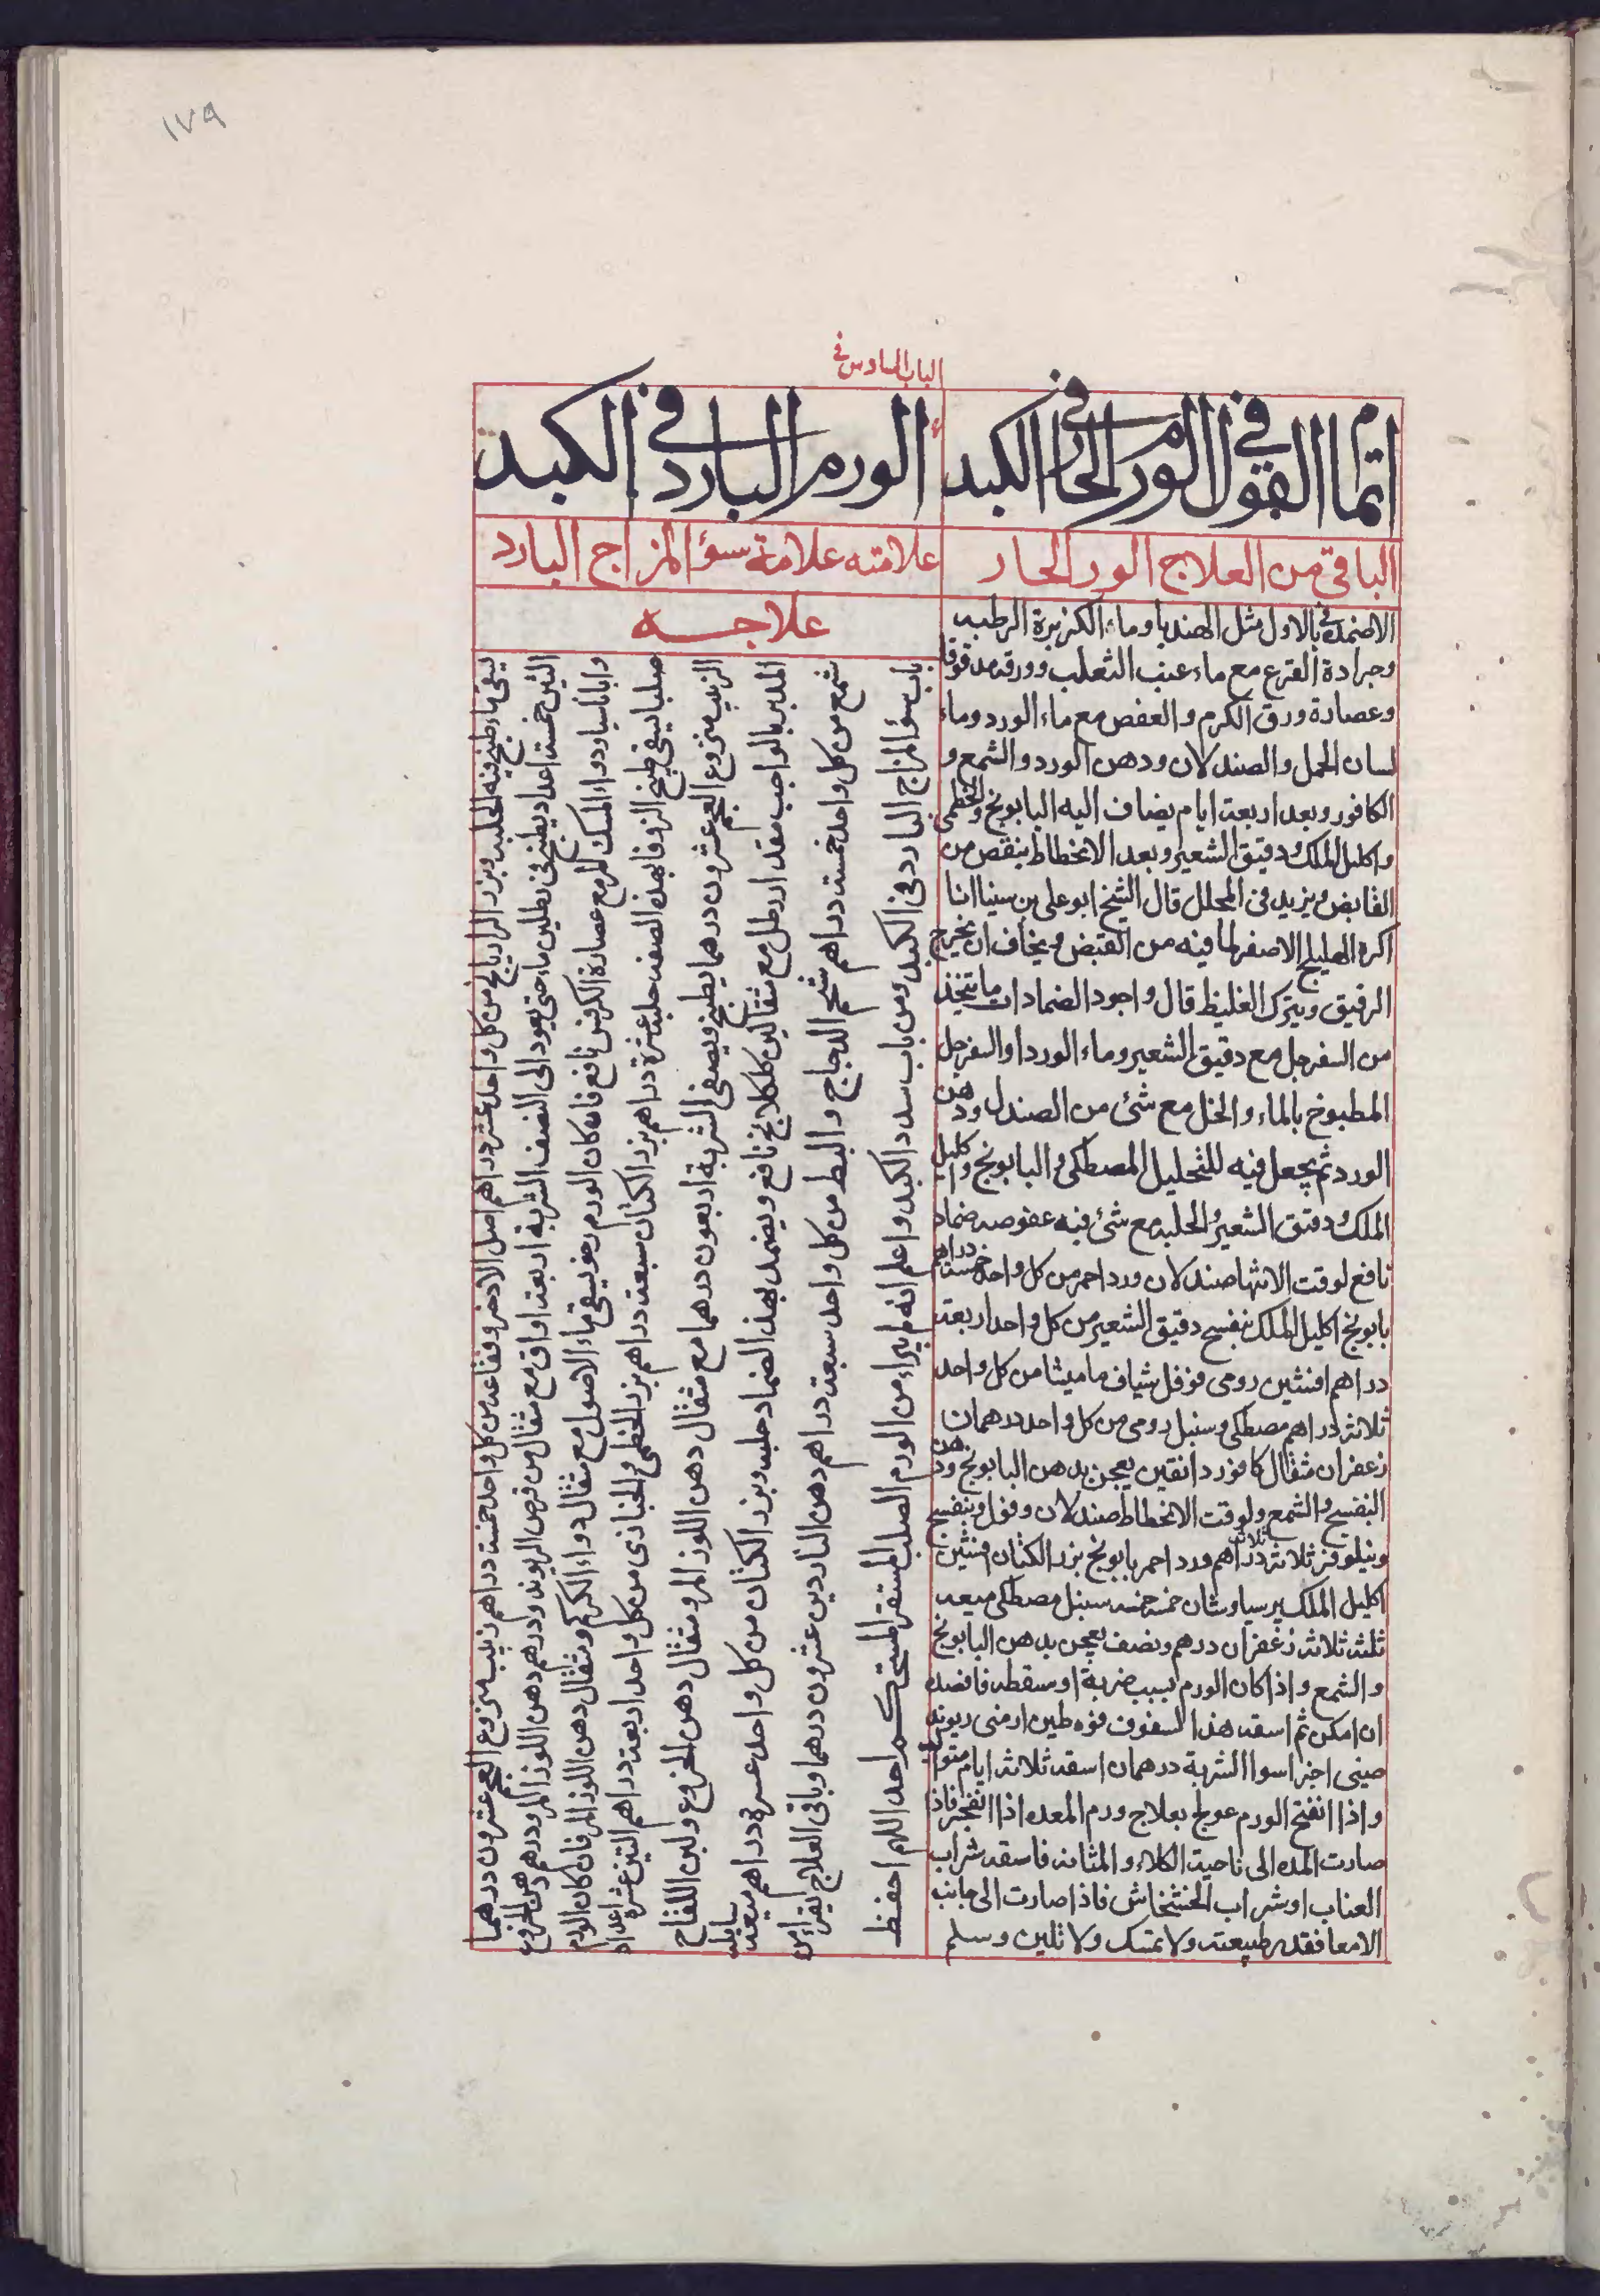 ١٧٩
الباب السادس في
اتمام القول في الورم الحار في الكبد
الباقي من العلاج الورم الحار
الاضمدة في الاول مثل الهندبا وماء الكزبرة الرطبه
وجرادة القرع مع ماء عنب الثعلب وورقه مدقوقا
وعصارة ورق الكرم والعفص مع ماء الورد وماء
لسان الحمل والصندلان ودهن الورد والشمع و
الكافور وبعد اربعة ايام يضاف اليه البابونج والخطمى
واكليل الملك ودقيق الشعير وبعد الانحطاط ينقص من
القابض ويزيد فى المحلل قال الشيخ ابو على بن سينا انا
اكره الهليلج الاصفر لما فيه من القبض ويخاف ان يخرج
الرقيق ويترك الغليظ قال واجود الضمادات ما يتخذ
من السفرجل مع دقيق الشعير وماء الورد او السفرجل
المطبوخ بالماء والخل مع شئ من الصندل ودهن
الورد ثم يجعل فيه للتحليل المصطكى والبابونج واكليل
الملك ودقيق الشعير والحلبه مع شئ فيه عفوصه ضماد
نافع لوقت الانتها صندلان ورد احمر من كل واحد خمسة دراهم
بابونج اكليل الملك بنفسج دقيق الشعير من كل واحد اربعة
دراهم افسنتين رومى فوفل شياف ماميثا من كل واحد
ثلاثة دراهم مصطكى وسنبل رومى من كل واحد درهمان
زعفران مثقال كافور دانقين يعجن بدهن البابونج ودهن
البنفسج والشمع ولوقت الانحطاط صندلان وفوفل وبنفسج
ونيلوفر ثلاثة ثلاثة دراهم ورد احمر بابونج بزر الكتان افسنتين
اكليل الملك برسياوشان خمسه خمسه سنبل مصطكى ميعه
ثلثه ثلاثه زعفران درهم ونصف يعجن بدهن البابونج
والشمع واذا كان الورم بسبب ضربة او سقطه فافصد
ان امكن ثم اسقه هذا السفوف فوه طين ارمنى ريوند
صينى اجزا سوا الشربة درهمان اسقه ثلاثة ايام متواليه
واذا انفتح الورم عولج بعلاج ورم المعده اذا انفجر فاذا
صارت المده الى ناحية الكلاء والمثانه فاسقه شراب
العناب او شراب الخشخاش فاذا صارت الى جانب
الامعا فقدر طبيعته ولا تمسك ولا تلين وسلم
الورم البارد في الكبد
علامته علامة سوء المزاج البارد
علاجه
يسقى ماء طبخ فيه الحلبه وبزر الرازيانج من كل واحد عشرة دراهم اصل الاذخر وفقاحه من كل واحد خمسة دراهم زبيب منزوع العجم عشرون درهما
التين خمسة اعداد يطبخ فى رطلين ماء حتى يعود الى النصف الشربة اربعة اواق مع مثقال من قرص الريوند ودرهم دهن اللوز المر ودرهم دهن الخروع
واباناسيا ودواء المسك المر مع عصارة الكرفس نافع فان كان الورم رخو يسقى ماء الاصول مع مثقال دواء الكركم ومثقال دهن اللوز المر فان كان الورم
صلبا يسقى طبيخ الزوفا بهذه الصفه حلبه عشرة دراهم بزر الكتان سبعة دراهم بزر الخطمى والخبازى من كل واحد اربعة دراهم التين عشرة اعداد
الزبيب منزوع العجم عشرون درهما يطبخ ويصفى الشربة اربعون درهما مع مثقال دهن اللوز المر ومثقال دهن الخروع ولبن اللقاح
المدبر بالواجب مقدار رطل مع مثقالين كلكلانج نافع ويضمد بهذا الضماد حلبه وبزر الكتان من كل واحد عشرة دراهم ميعه سايله
شمع من كل واحد خمسة دراهم شحم الدجاج والبط من كل واحد سبعة دراهم دهن الناردين عشرون درهما وباقى العلاج يقراء من
باب سوء المزاج البارد فى الكبد ومن باب سدد الكبد واعلم انه لم يبراء من الورم الصلب المستقر المستحكم احد اللهم احفظ